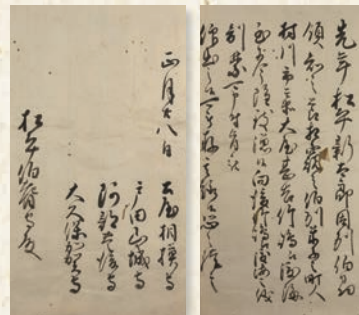 先年松平新太郎因州伯州
領知之節相窺之伯州米子之町人
村川市兵衛大屋甚吉竹嶋江渡海
至于今雖致漁候向後竹嶋江渡海之儀
制禁可申付旨被
仰出之候間可被存其趣候恐々謹言
正月廿八日 土屋相模守
戸田山城守
阿部豊後守
大久保加賀守
松平伯耆守殿